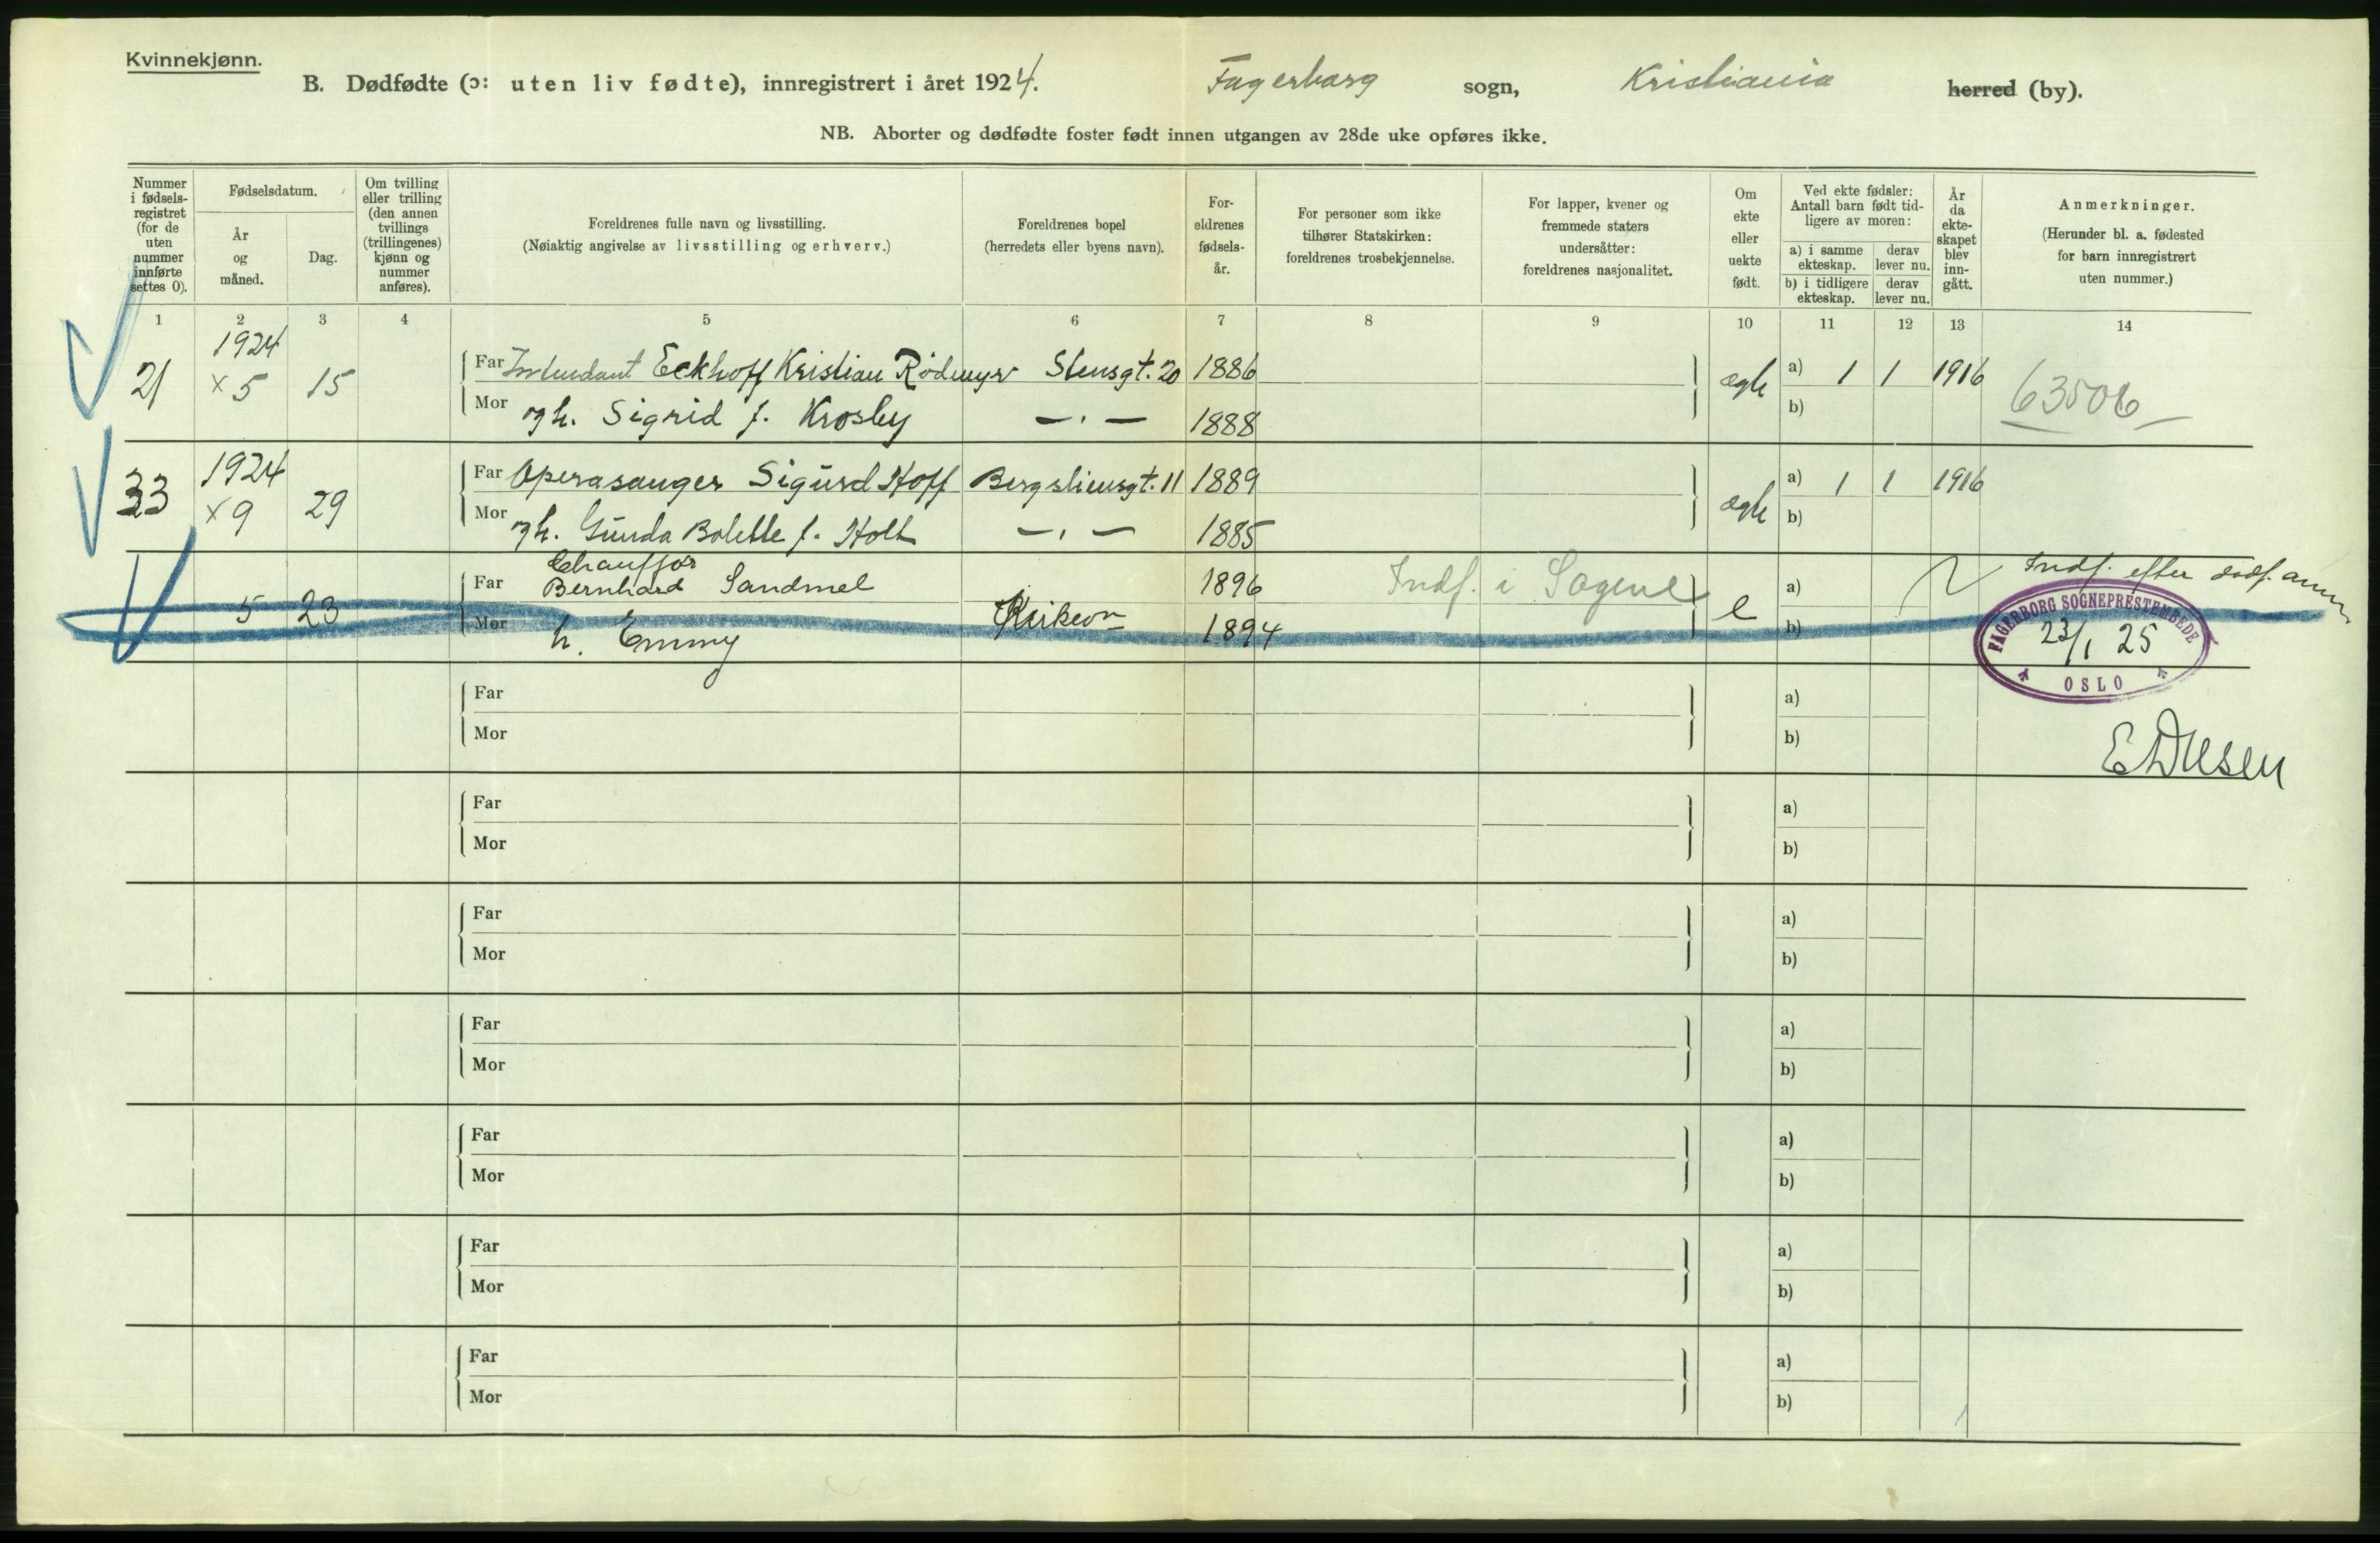 Kvinnekjønn.
B. Dødfødte (ɔ: uten liv fødte), innregistrert i året 1924. Fagerborg sogn, Kristiania herred (by).
NB. Aborter og dødfødte foster født innen utgangen av 28de uke opføres ikke.
Nummer i fødselsregistret (for de uten nummer innførte settes 0).
Fødselsdatum.
År og måned.
Dag.
Om tvilling eller trilling (den annen tvillings (trillingenes) kjønn og nummer anføres).
Foreldrenes fulle navn og livsstilling.
(Nøiaktig angivelse av livsstilling og erhverv.)
Foreldrenes bopel
(herredets eller byens navn).
Foreldrenes fødselsår.
For personer som ikke
tilhører Statskirken:
foreldrenes trosbekjennelse.
For lapper, kvener og
fremmede staters
undersåtter:
foreldrenes nasjonalitet.
Om ekte eller uekte født.
Ved ekte fødsler:
Antall barn født tidligere av moren:
a) i samme ekteskap.
derav lever nu.
b) i tidligere ekteskap.
derav lever nu.
År da ekteskapet blev inngått.
Anmerkninger.
(Herunder bl. a. fødested
for barn innregistrert
uten nummer.)
1 2 3 4 5 6 7 8 9 10 11 12 13 14
1924
21 × 5 15 Far Intendant Eckhoff Kristian Rödmyr Stensgt. 20 1886 ægte a) 1 1 1916 63506
Mor og h. Sigrid f. Krosby — . — 1888 b)
1924
33 × 9 29 Far Operasanger Sigurd Hoff Bergsliensgt. 11 1889 ægte a) 1 1 1916
Mor og h. Gunda Bolette f. Holt — . — 1885 b)
Chauffør
Far Bernhard Sandmel 1896 Indf. i Sagene a) Indf. efter dødf. anm
5 23 Mor h. Emmy Kirkevn 1894 e b)
FAGERBORG SOGNEPRESTEMBEDE
23/1 25
OSLO
Far a)
Mor b)
Far a)
Mor b)
Far a)
Mor b)
Far a)
Mor b)
Far a)
Mor b)
Far a)
Mor b)
Far a)
Mor b)